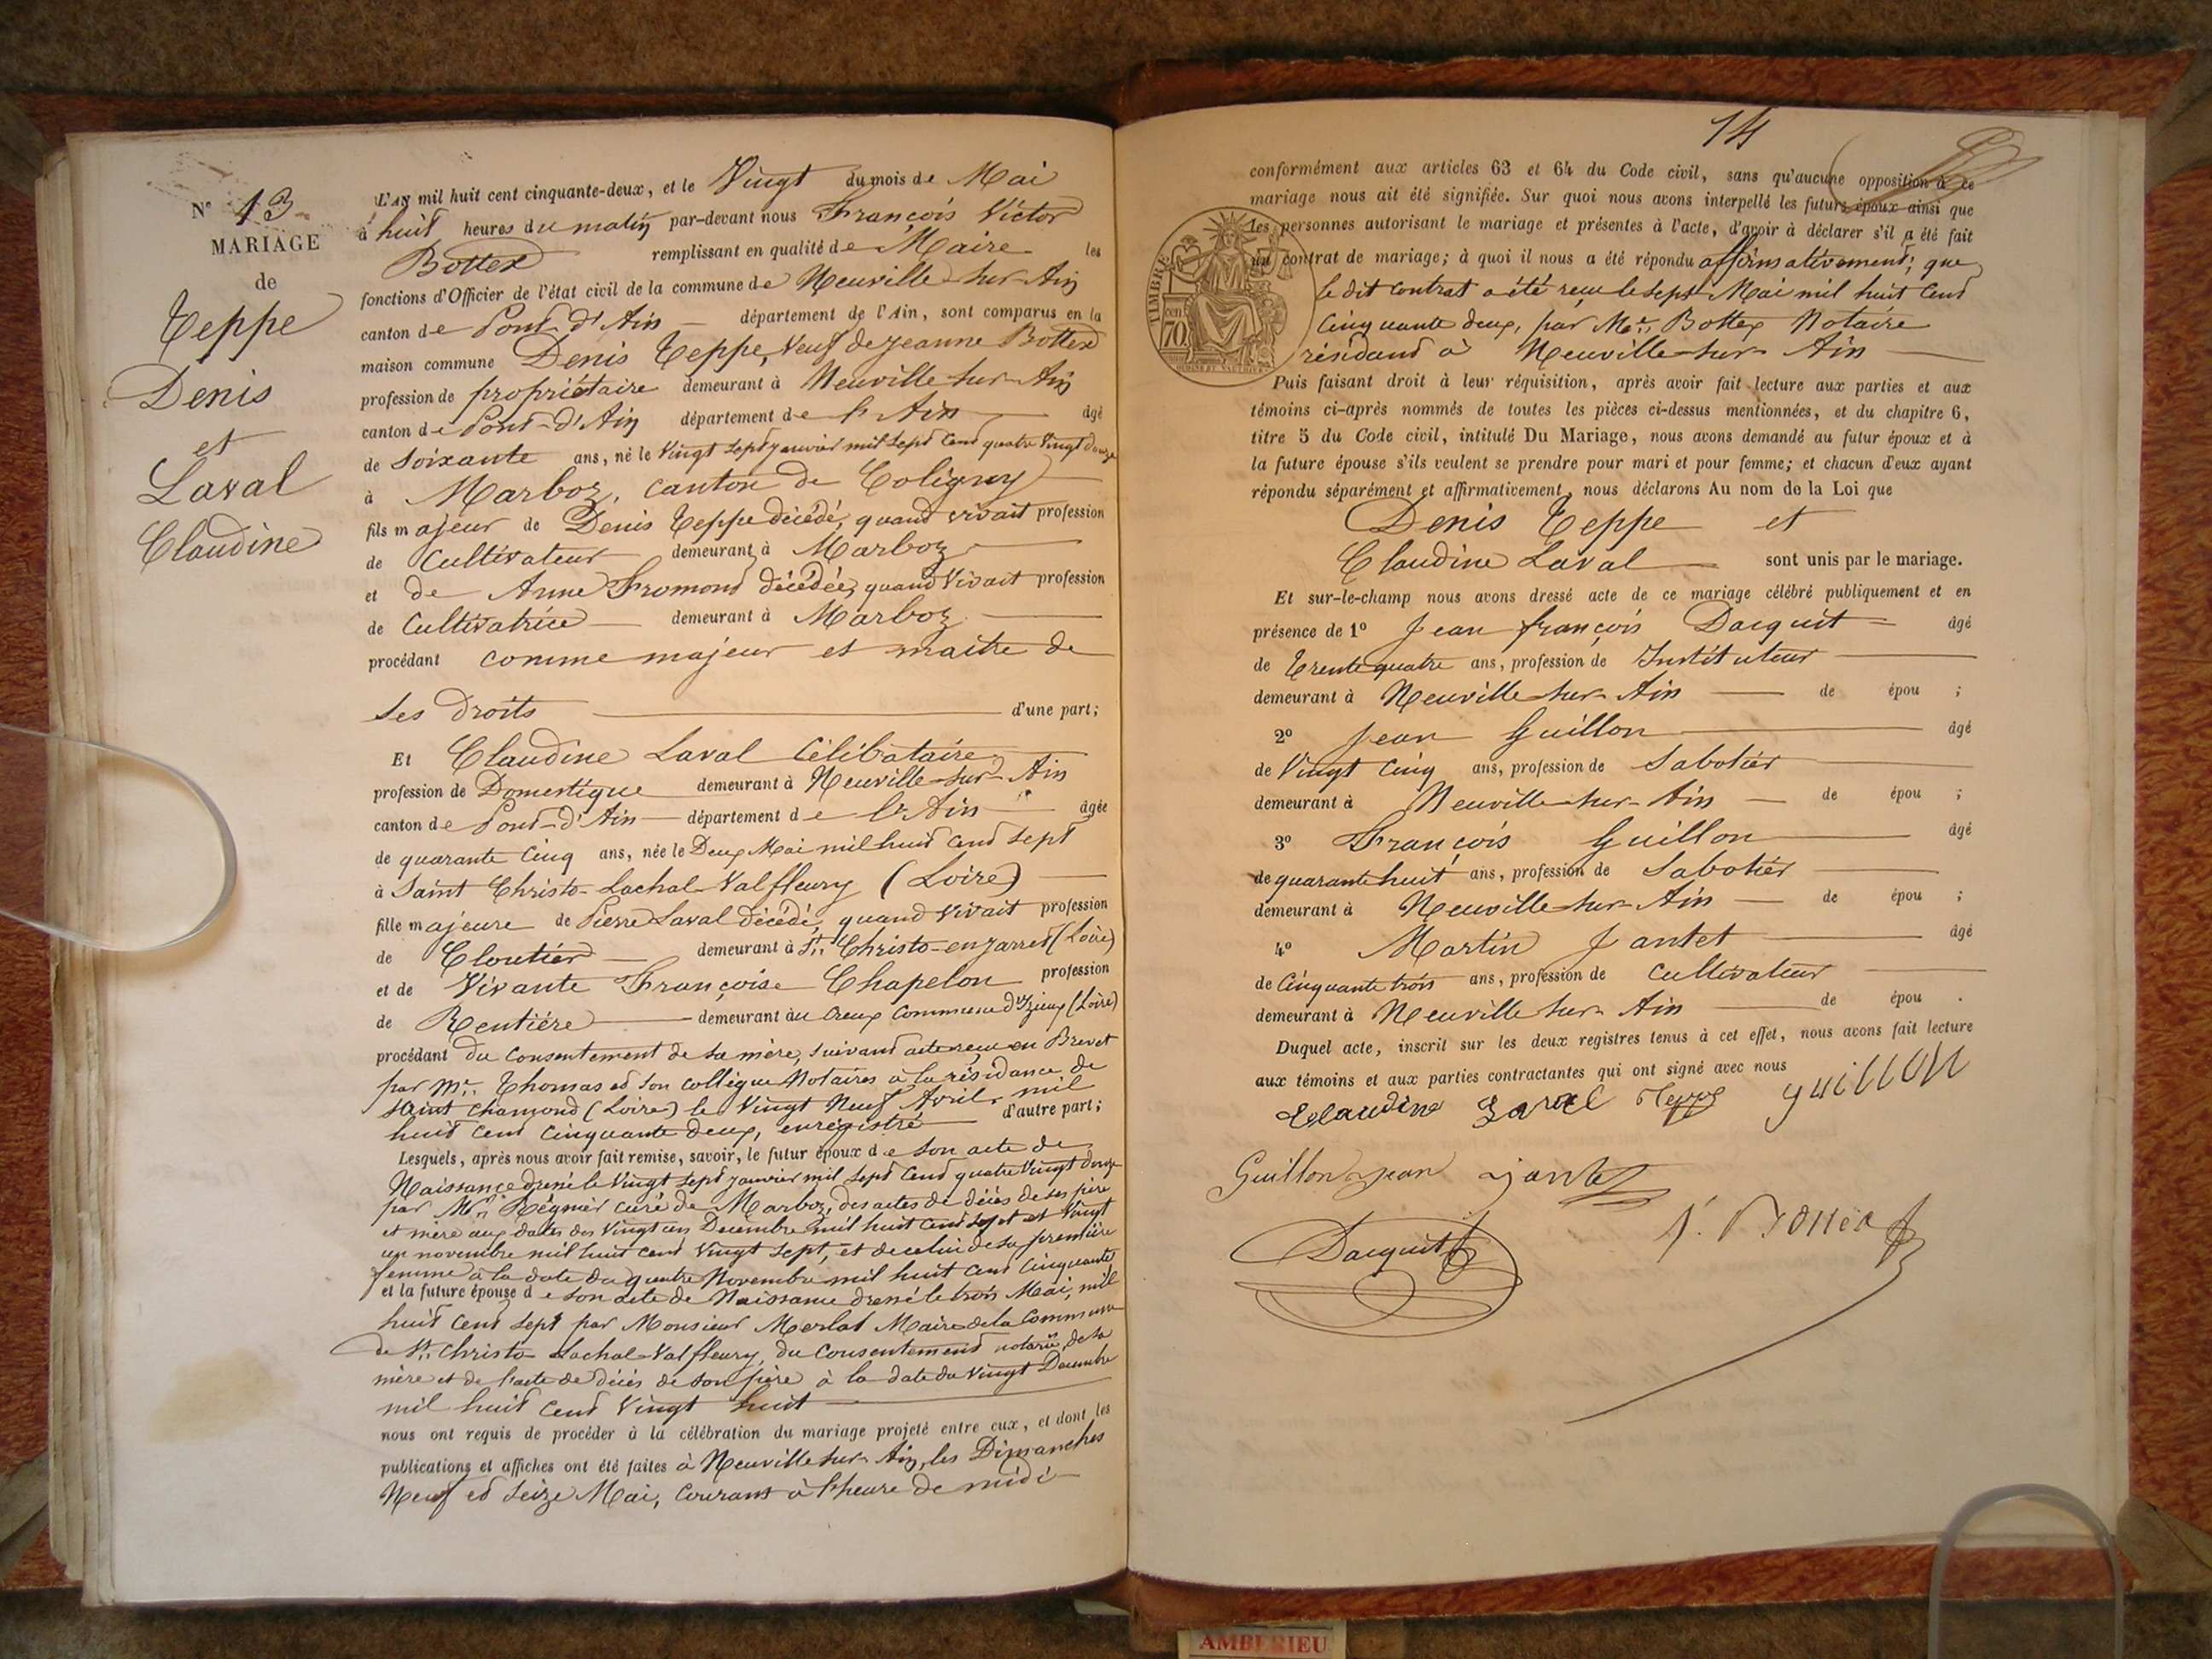 N° 13
MARIAGE
de
Teppe
Denis
et
Laval
Claudine
L'AN mil huit cent cinquante-deux, et le Vingt du mois de Mai
à huit heures du matin par-devant nous François Victor
Bottex remplissant en qualité de Maire les
fonctions d'Officier de l'état civil de la commune de Neuville-sur-Ain
canton de Pont-d'Ain département de l'Ain, sont comparus en la
maison commune Denis Teppe, Veuf de Jeanne Bottex
profession de propriétaire demeurant à Neuville-sur-Ain
canton de Pont-d'Ain département de l'Ain âgé
de soixante ans, né le Vingt sept janvier mil sept cent quatre Vingt douze
à Marboz, canton de Coligny
fils majeur de Denis Teppe décédé, quand vivait profession
de Cultivateur demeurant à Marboz
et de Anne Fromond décédée, quand Vivait profession
de Cultivatrice demeurant à Marboz
procédant comme majeur et maitre de
ses droits d'une part;
Et Claudine Laval Célibataire
profession de Domestique demeurant à Neuville-sur-Ain
canton de Pont-d'Ain département de l'Ain âgée
de quarante Cinq ans, née le Deux Mai mil huit cent sept
à Saint Christo-Lachal-Valfleury (Loire)
fille majeure de Pierre Laval décédé, quand Vivait profession
de Cloutier demeurant à St. Christo-en-jarret (Loire)
et de Vivante Françoise Chapelon profession
de Rentière demeurant au Creux Commune d'Izieux (Loire)
procédant du Consentement de sa mère, suivant acte reçu en Brevet
par Mr. Thomas et son collègue Notaires à la résidance de
saint chamond (Loire) le Vingt Neuf Avril mil
huit cent cinquante deux, enregistré d'autre part;
Lesquels, après nous avoir fait remise, savoir, le futur époux de son acte de
Naissance dressé le Vingt sept janvier mil sept cent quatre Vingt douze
par Mr. Régnier curé de Marboz, des actes de décès de ses père
et mère aux dates des Vingt un Decembre mil huit cent sept et Vingt
un novembre mil huit cent Vingt sept, et de celui de sa première
femme à la date du quatre Novembre mil huit cent Cinquante
et la future épouse de son acte de Naissance dressé le trois Mai, mil
huit cent sept par Monsieur Merlat Maire de la Commune
de St. Christo-Lachal-Valfleury, du Consentement notarié de sa
mère et de l'acte de décès de son père à la date du Vingt Decembre
mil huit Cent Vingt huit
nous ont requis de procéder à la célébration du mariage projeté entre eux, et dont les
publications et affiches ont été faites à Neuville-sur-Ain, les Dimanches
Neuf et seize Mai, Courant à l'heure de midi
14
conformément aux articles 63 et 64 du Code civil, sans qu'aucune opposition à ce
mariage nous ait été signifiée. Sur quoi nous avons interpellé les futurs époux ainsi que
les personnes autorisant le mariage et présentes à l'acte, d'avoir à déclarer s'il a été fait
un contrat de mariage; à quoi il nous a été répondu affirmativement; que
le dit contrat a été reçu le sept Mai mil huit Cent
Cinquante deux, par Me. Bottex Notaire
résidant à Neuville-sur-Ain
TIMBRE
cen
70
Puis faisant droit à leur réquisition, après avoir fait lecture aux parties et aux
témoins ci-après nommés de toutes les pièces ci-dessus mentionnées, et du chapitre 6,
titre 5 du Code civil, intitulé Du Mariage, nous avons demandé au futur époux et à
la future épouse s'ils veulent se prendre pour mari et pour femme; et chacun d'eux ayant
répondu séparément et affirmativement, nous déclarons Au nom de la Loi que
Denis Teppe et
Claudine Laval sont unis par le mariage.
Et sur-le-champ nous avons dressé acte de ce mariage célébré publiquement et en
présence de 1° Jean françois Dacquit âgé
de Trente quatre ans, profession de Instituteur
demeurant à Neuville-sur-Ain de épou ;
2° Jean Guillon âgé
de Vingt Cinq ans, profession de Sabotier
demeurant à Neuville-sur-Ain de épou ;
3° François Guillon âgé
de quarante huit ans, profession de Sabotier
demeurant à Neuville-sur-Ain de épou ;
4° Martin Jantet âgé
de Cinquante trois ans, profession de Cultivateur
demeurant à Neuville-sur-Ain de épou .
Duquel acte, inscrit sur les deux registres tenus à cet effet, nous avons fait lecture
aux témoins et aux parties contractantes qui ont signé avec nous
Claudine Laval Teppe guillon
Guillon Jean Jantet
Dacquit V. Bottex
AMBERIEU